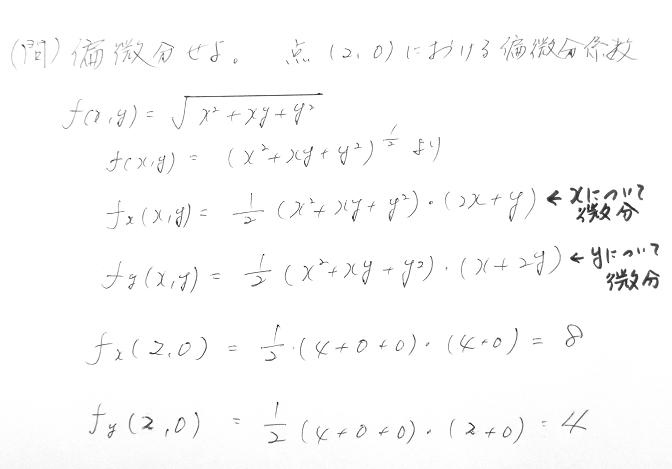 (問) 偏微分せよ。 点(2,0)における偏微分係数
f(x,y) = √(x²+xy+y²)
f(x,y) = (x²+xy+y²)^(1/2) より
fx(x,y) = 1/2 (x²+xy+y²)・(2x+y) ← xについて微分
fy(x,y) = 1/2 (x²+xy+y²)・(x+2y) ← yについて微分
fx(2,0) = 1/2・(4+0+0)・(4+0) = 8
fy(2,0) = 1/2 (4+0+0)・(2+0) = 4